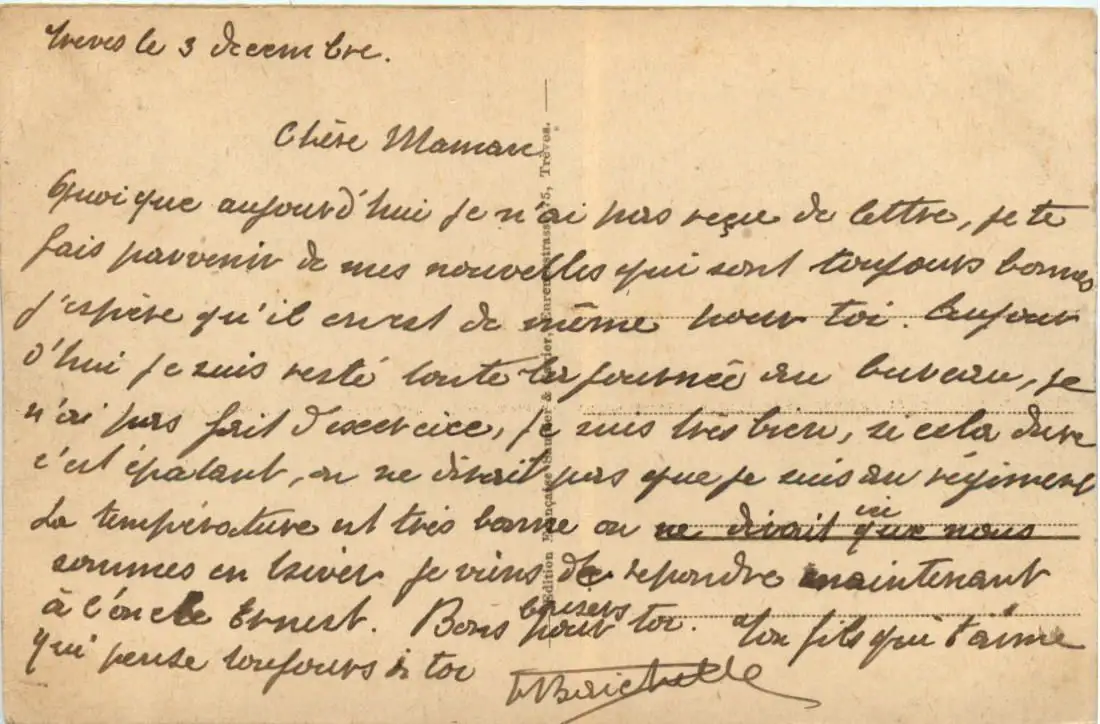 Treves le 3 decembre.
Chère Maman
Quoique aujourd'hui je n'ai pas reçu de lettre, je te
fais parvenir de mes nouvelles qui sont toujours bonnes
j'espère qu'il en est de même pour toi. Aujour
d'hui je suis resté toute la journée au bureau, je
n'ai pas fait d'exercice, je suis très bien, si cela dure
c'est épatant, on ne dirait pas que je suis au régiment
La température est très bonne on ne dirait ici que nous
sommes en hiver je viens de repondre maintenant
à l'oncle Ernest. Bons baisers pour toi. Ton fils qui t'aime
qui pense toujours à toi
Edition Française 75, Trèves.